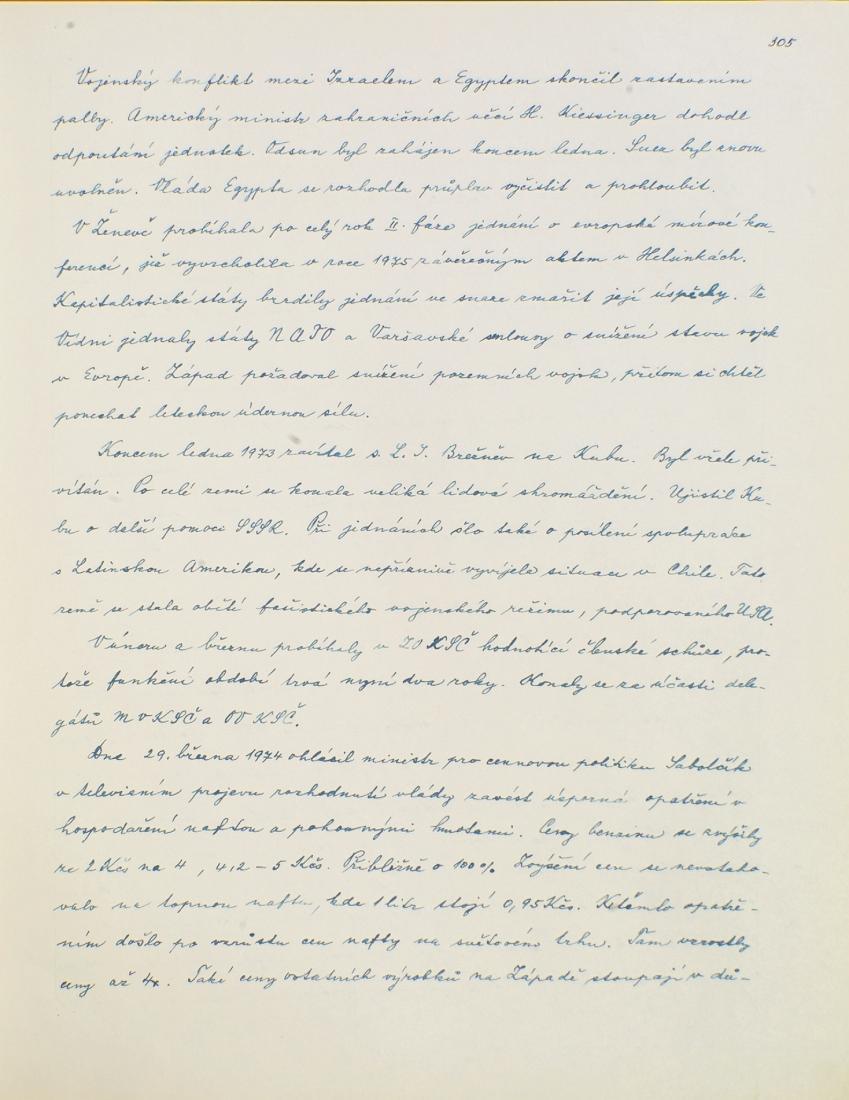 305
Vojenský konflikt mezi Izraelem a Egyptem skončil zastavením
palby. Americký ministr zahraničních věcí H. Kiessinger dohodl
odpoutání jednotek. Odsun byl zahájen koncem ledna. Suez byl znovu
uvolněn. Vláda Egypta se rozhodla průplav vyčistit a prohloubit.
V Ženevě probíhala po celý rok II. fáze jednání o evropské mírové kon-
ferenci, jež vyvrcholila v roce 1975 závěrečným aktem v Helsinkách.
Kapitalistické státy brzdily jednání ve snaze zmařit její úspěchy. Ve
Vídni jednaly státy NATO a Varšavské smlouvy o snížení stavu vojsk
v Evropě. Západ požadoval snížení pozemních vojsk, přitom si chtěl
ponechat leteckou údernou sílu.
Koncem ledna 1973 zavítal s. L. I. Brežněv na Kubu. Byl vřele při-
vítán. Po celé zemi se konala veliká lidová shromáždění. Ujistil Ku-
bu o další pomoci SSSR. Při jednáních šlo také o posílení spolupráce
s Latinskou Amerikou, kde se nepříznivě vyvíjela situace v Chile. Tato
země se stala obětí fašistického vojenského režimu, podporovaného USA.
V únoru a březnu probíhaly v ZO KSČ hodnotící členské schůze, pro-
tože funkční období trvá nyní dva roky. Konaly se za účasti dele-
gátů MV KSČ a OV KSČ.
Dne 29. března 1974 ohlásil ministr pro cennovou politiku Sabolčík
v televisním projevu rozhodnutí vlády zavést úsporná opatření v
hospodaření naftou a pohonnými hmotami. Ceny benzinu se zvýšily
ze 2 Kčs na 4, 4,2 - 5 Kčs. Přibližně o 100%. Zvýšení cen se nevztaho-
valo na topnou naftu, kde 1 litr stojí 0,95 Kčs. K těmto opatře-
ním došlo po vzrůstu cen nafty na světovém trhu. Tam vzrostly
ceny až 4x. Také ceny ostatních výrobků na Západě stoupají v dů-